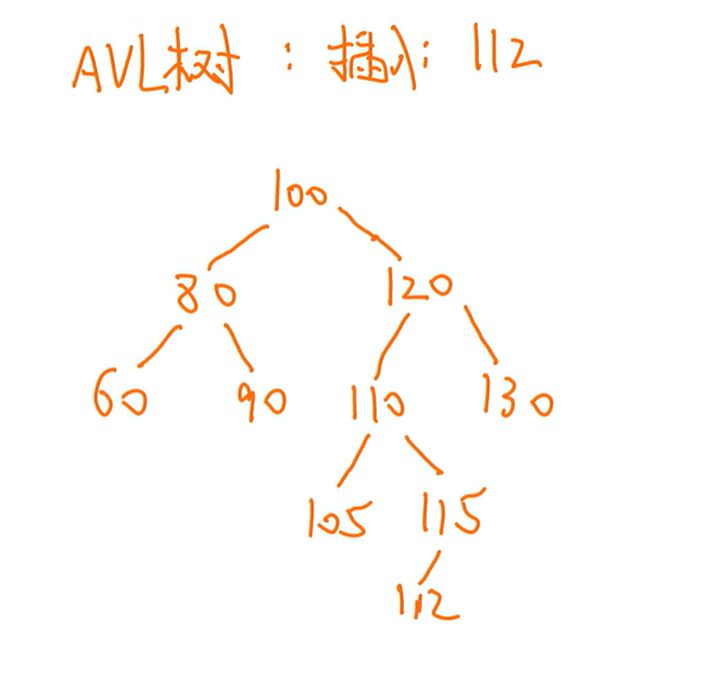 AVL树：插入：112
100
80 120
60 90 110 130
105 115
112